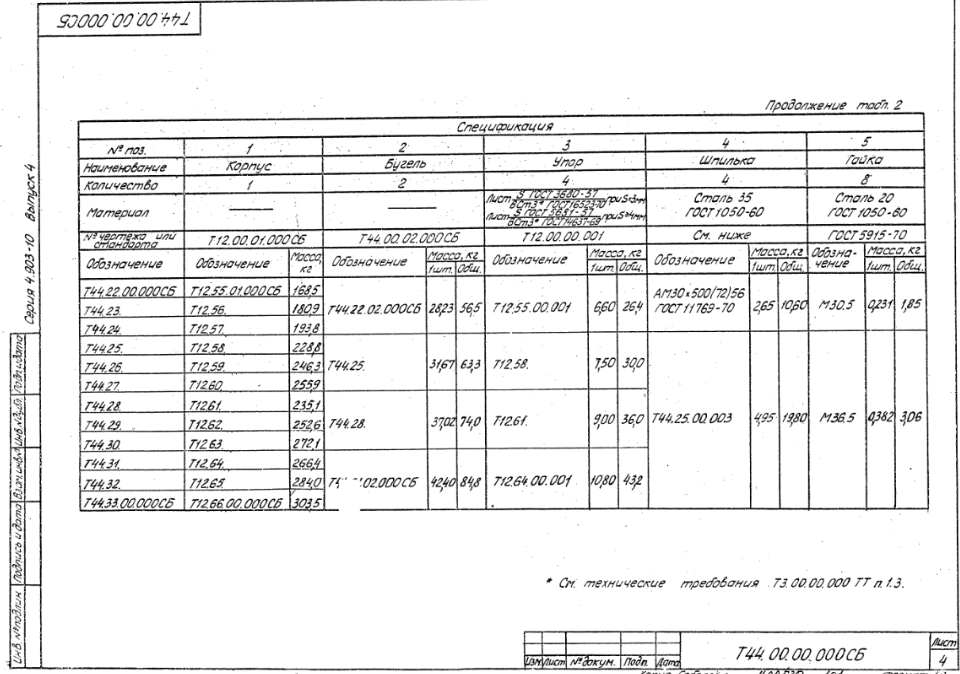 Т44.00.00.000СБ
Серия 4.903-10 Выпуск 4
Продолжение табл. 2
Спецификация
№ поз. 1 2 3 4 5
Наименование Корпус Бугель Упор Шпилька Гайка
Количество 1 2 4 4 8
Материал Лист S ГОСТ 3680-57 / ВСт3* ГОСТ16523-70 при S<3мм Сталь 35 Сталь 20
Лист S ГОСТ 5681-57 / ВСт3* ГОСТ14637-69 при S≥4мм ГОСТ 1050-60 ГОСТ 1050-60
№ чертежа или стандарта Т12.00.01.000СБ Т44.00.02.000СБ Т12.00.00.001 См. ниже ГОСТ 5915-70
Обозначение Обозначение Масса, кг Обозначение Масса, кг Обозначение Масса, кг Обозначение Масса, кг Обозна-чение Масса, кг
1шт. Общ. 1шт. Общ. 1шт. Общ. 1шт. Общ.
Т44.22.00.000СБ Т12.55.01.000СБ 168,5 АМ30×500/72/56
Т44.23. Т12.56. 180,9 Т44.22.02.000СБ 28,23 56,5 Т12.55.00.001 6,60 26,4 ГОСТ 11769-70 2,65 10,60 М30.5 0,231 1,85
Т44.24. Т12.57. 193,8
Т44.25. Т12.58. 228,8
Т44.26. Т12.59. 246,3 Т44.25. 31,67 63,3 Т12.58. 7,50 30,0
Т44.27. Т12.60. 255,9
Т44.28. Т12.61. 235,1
Т44.29. Т12.62. 252,6 Т44.28. 37,02 74,0 Т12.61. 9,00 36,0 Т44.25.00.003 4,95 19,80 М36.5 0,382 3,06
Т44.30. Т12.63. 272,1
Т44.31. Т12.64. 266,4
Т44.32. Т12.65 284,0 02.000СБ 42,40 84,8 Т12.64.00.001 10,80 43,2
Т44.33.00.000СБ Т12.66.00.000СБ 303,5
* См. технические требования Т3.00.00.000 ТТ п.1.3.
Инв.№подлин Подпись и дата Взам.инв.№ Инв.№дубл Подп.и дата
Изм Лист №докум. Подп. Дата
Т44.00.00.000СБ
Лист
4